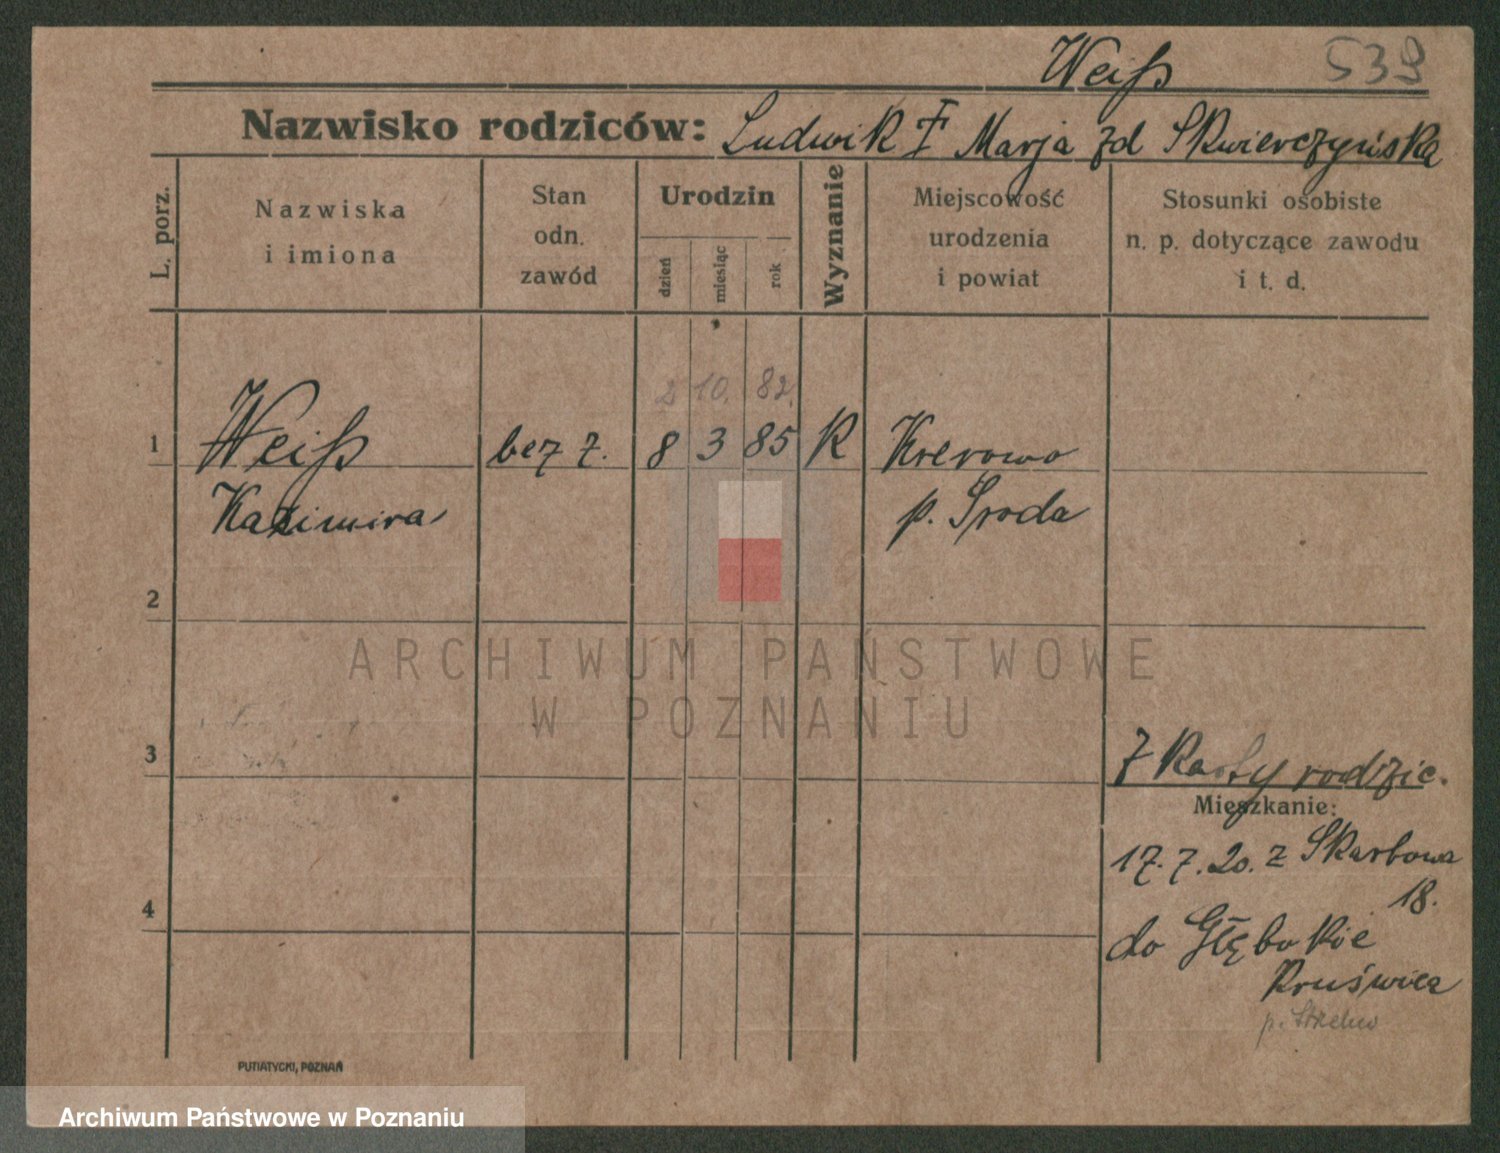 Weiß 539
Nazwisko rodziców: Ludwik Marja zd Skwierczyńska
L. porz.
Nazwiska
i imiona
Stan
odn.
zawód
Urodzin
dzień
miesiąc
rok
Wyznanie
Miejscowość
urodzenia
i powiat
Stosunki osobiste
n. p. dotyczące zawodu
i t. d.
2 10. 82.
1 Weiß bez z. 8 3 85 R Krerowo
Kazimira p. Środa
2
ARCHIWUM PAŃSTWOWE
W POZNANIU
3
Z Karty rodzic.
Mieszkanie:
17.7.20. z Skarbowa
18.
4
do Głębokie
Kruświca
p. Strzelno
PUTIATYCKI, POZNAŃ
Archiwum Państwowe w Poznaniu